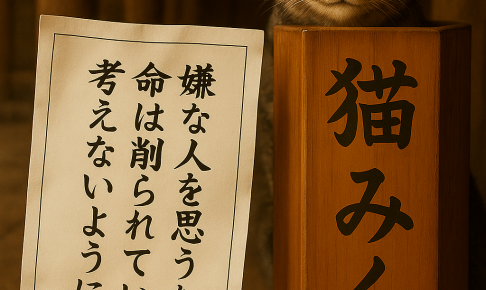 嫌な人を思う
命は削られて
考えないように
猫みく